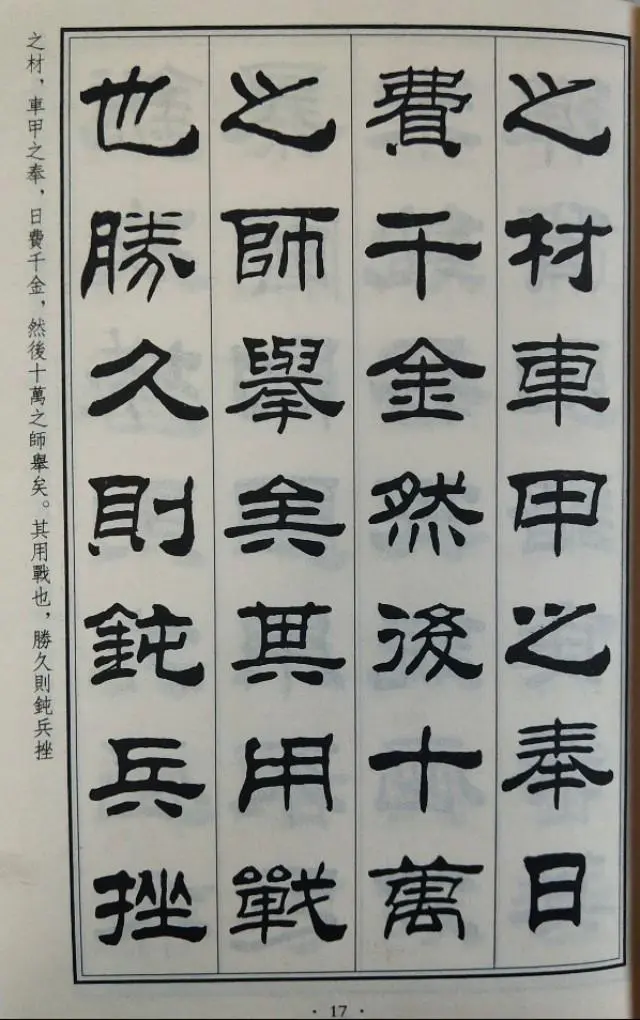 之材車甲之奉日
費千金然後十萬
之師舉矣其用戰
也勝久則鈍兵挫
之材，車甲之奉，日費千金，然後十萬之師舉矣。其用戰也，勝久則鈍兵挫
· 17 ·